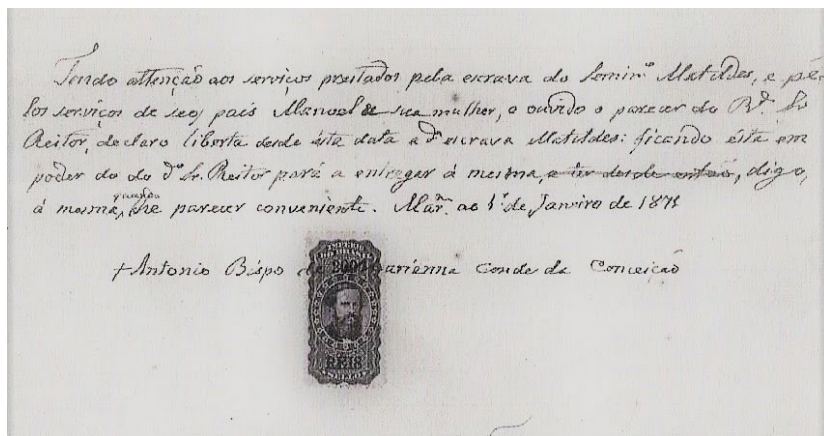 Tendo attenção aos serviços prestados pela escrava do Semin.º Matildes, e pe-
los serviços de seos pais Manoel & sua mulher, e ouvido o parecer do R.do Sr.
Reitor, declaro liberta desde ésta data a d.ª escrava Matildes: ficando ésta em
poder do do d.º Sr. Reitor pará a entregar á mesma, e ter desde entaõ, digo,
á mesma, quando lhe parecer conveniente. Mar.ª ao 1.º de Janeiro de 1871
+ Antonio Bispo de Marianna Conde da Conceição
IMPERIO
DO BRASIL
200
REIS